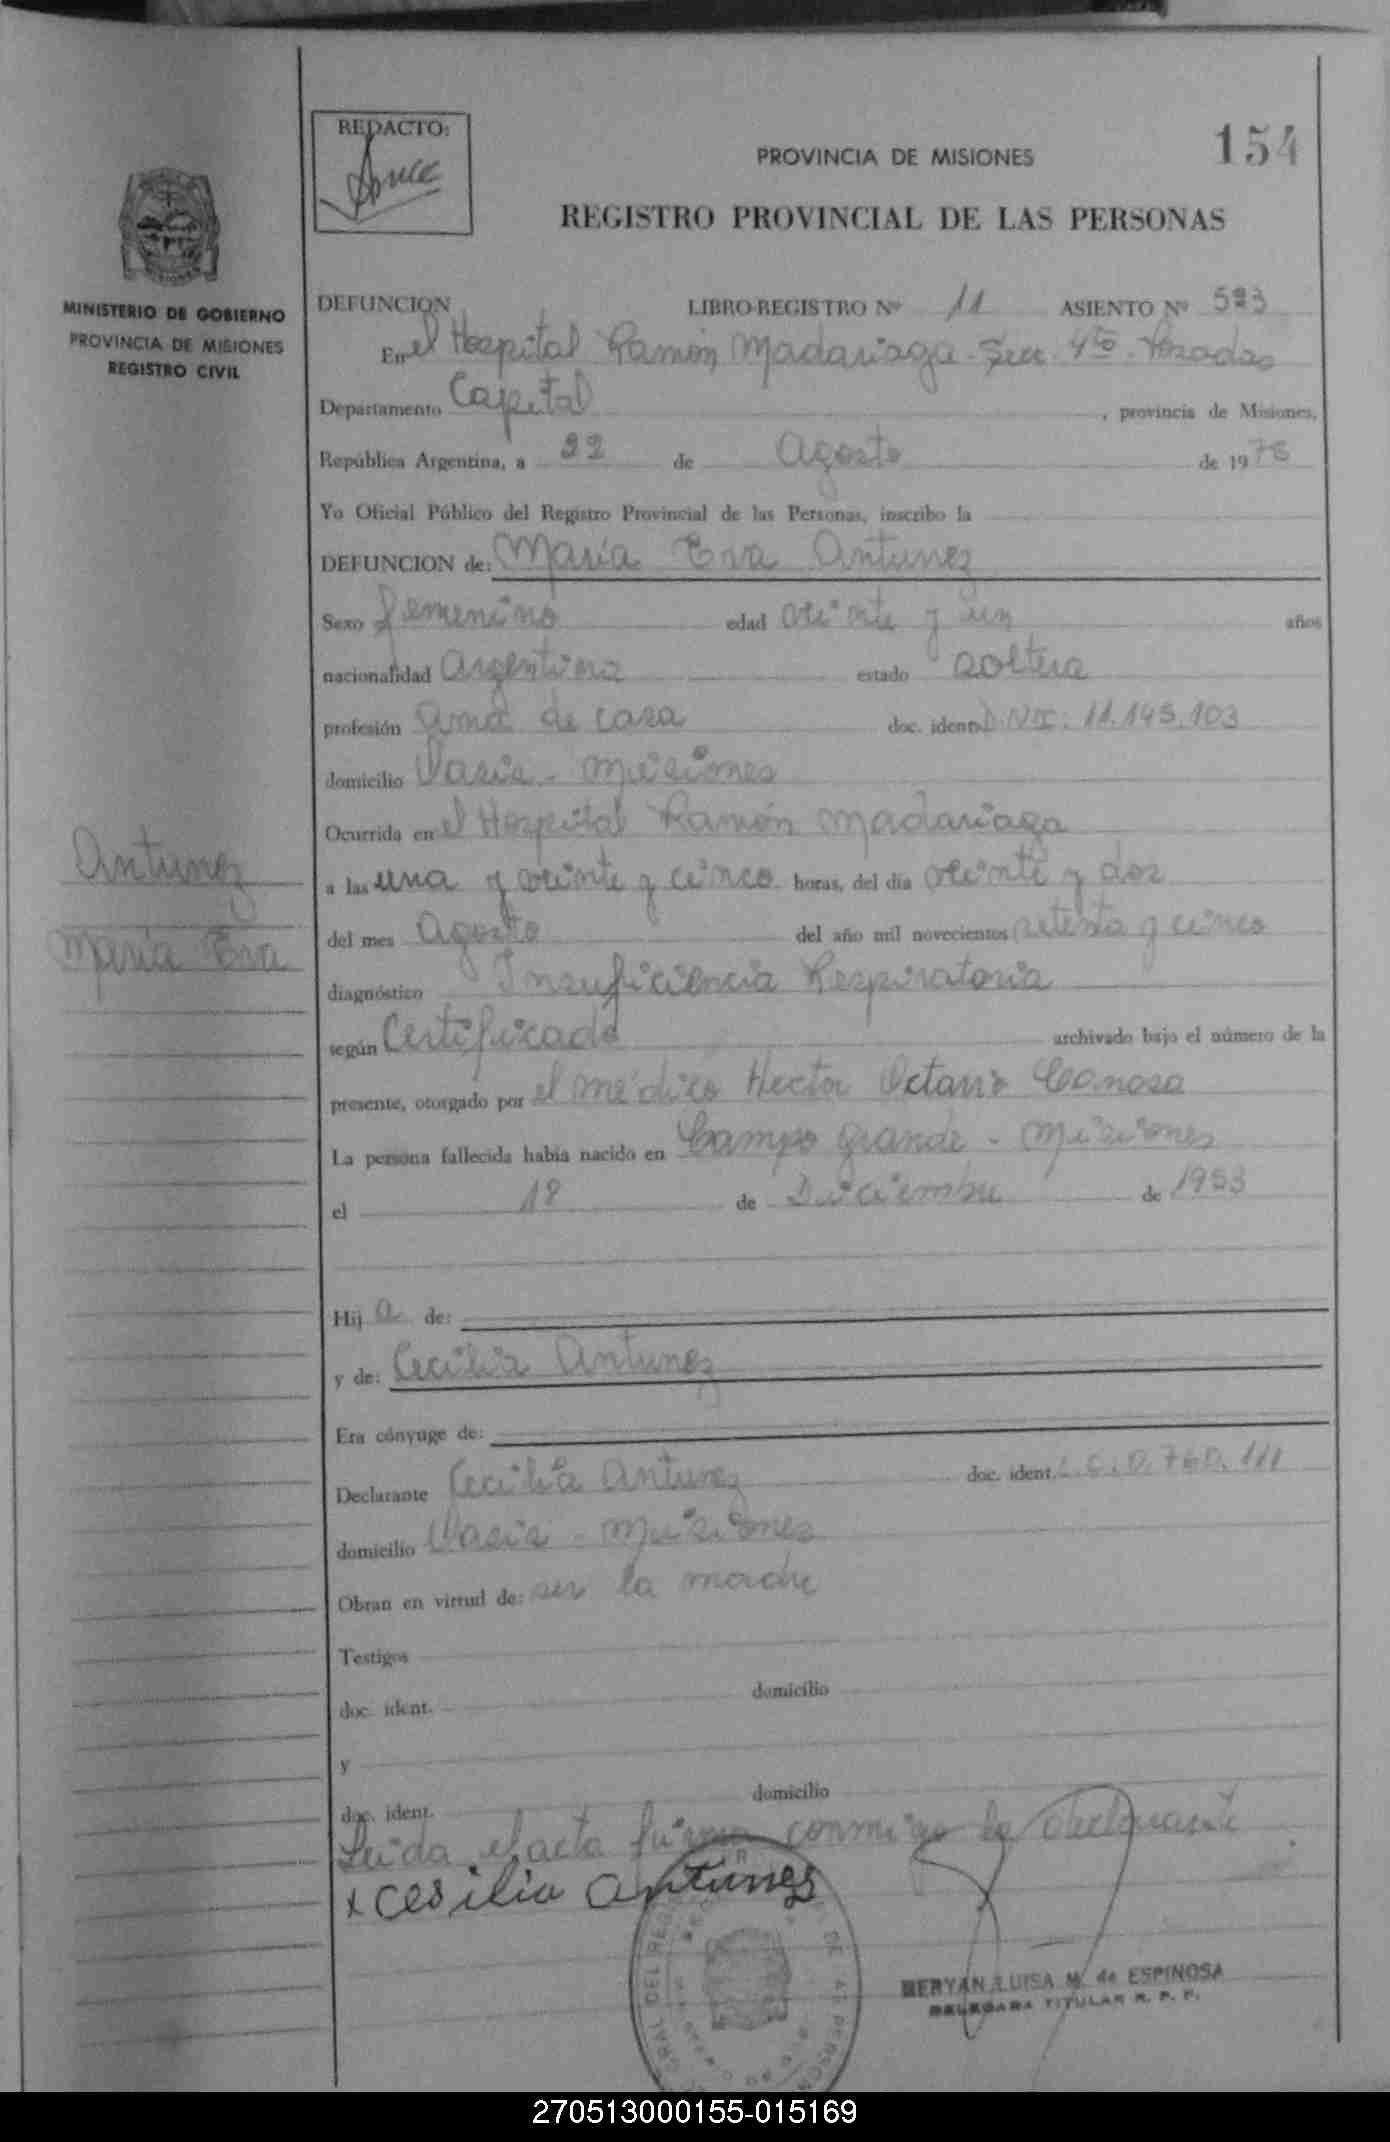 REDACTO:
PROVINCIA DE MISIONES
154
REGISTRO PROVINCIAL DE LAS PERSONAS
MINISTERIO DE GOBIERNO
PROVINCIA DE MISIONES
REGISTRO CIVIL
DEFUNCION LIBRO-REGISTRO Nº 11 ASIENTO Nº 523
En el Hospital Ramón Madariaga - Secc. 4ta. Posadas
Departamento Capital, provincia de Misiones,
República Argentina, a 22 de Agosto de 1975
Yo Oficial Público del Registro Provincial de las Personas, inscribo la
DEFUNCION de: María Eva Antunez
Sexo femenino edad veinte y un años
nacionalidad Argentina estado soltera
profesión ama de casa doc. ident. D.N.I: 11.145.103
domicilio Oasis - Misiones
Ocurrida en el Hospital Ramón Madariaga
Antunez
María Eva
a las una y veinte y cinco horas, del día veinte y dos
del mes Agosto del año mil novecientos setenta y cinco
diagnóstico Insuficiencia Respiratoria
según Certificado archivado bajo el número de la
presente, otorgado por el médico Hector Octavio Canosa
La persona fallecida había nacido en Campo Grande - Misiones
el 18 de Diciembre de 1953
Hij a de:
y de: Cecilia Antunez
Era cónyuge de:
Declarante Cecilia Antunez doc. ident. L.C.0.760.111
domicilio Oasis - Misiones
Obran en virtud de: ser la madre
Testigos
doc. ident. domicilio
y
doc. ident. domicilio
Leida el acta firma conmigo la declarante
x cesilia antunes
MERYAN LUISA M. de ESPINOSA
DELEGADA TITULAR R. P. P.
270513000155-015169